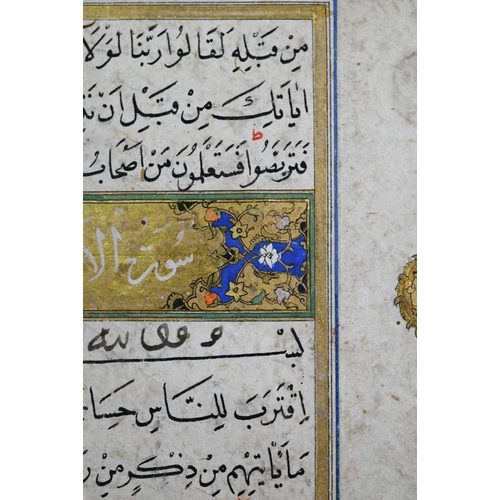 مِنْ قَبْلِهِ لَقَالُوا رَبَّنَا لَوْلَا
اٰيَاتِكَ مِنْ قَبْلِ اَنْ
فَتَرَبَّصُوا فَسَتَعْلَمُونَ مَنْ اَصْحَابُ
ط
سورة الا
بسـ
وقف لله
اِقْتَرَبَ لِلنَّاسِ حِسَا
مَا يَاْتِيهِمْ مِنْ ذِكْرٍ مِنْ